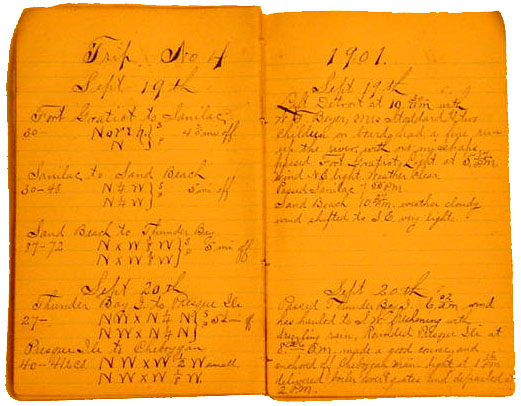 Trip No 4
Sept 19th
Fort Gratiot to Sanilac
30- North } 4 3 mi off
N
Sanilac to Sand Beach
30-48 N 1/4 W } 5 mi off
N 1/2 W
Sand Beach to Thunder Bay
37-72 N W } 5 mi off
N W W
Sept 20th
Thunder Bay I. to Presque Ile
27- N W x N 1/4 N } 5 1/2 - off
N W x N 1/2 N
Presque Ile to Cheboygan
40- N W x W 1/2 W
N W x W 1/8 W.
1901.
Sept 19th
Left Detroit at 10 AM with
Boyer, Mrs Stoddard & two
children on board, had a fine run
up the river, with
passed Fort Gratiot Light at 5 PM
wind N.E. light. Weather Clear
Passed Sanilac 7 PM
Sand Beach 10 PM, weather cloudy
wind shifted to S.E. very light.
Sept 20th
Passed Thunder Bay I. 6 AM wind
has hauled to S.W. freshening with
drizzling rain, Rounded Presque Ile at
8 AM, made a good course, and
anchored off Cheboygan main light at 1 PM
delivered boiler grates and departed at
2 P.M.